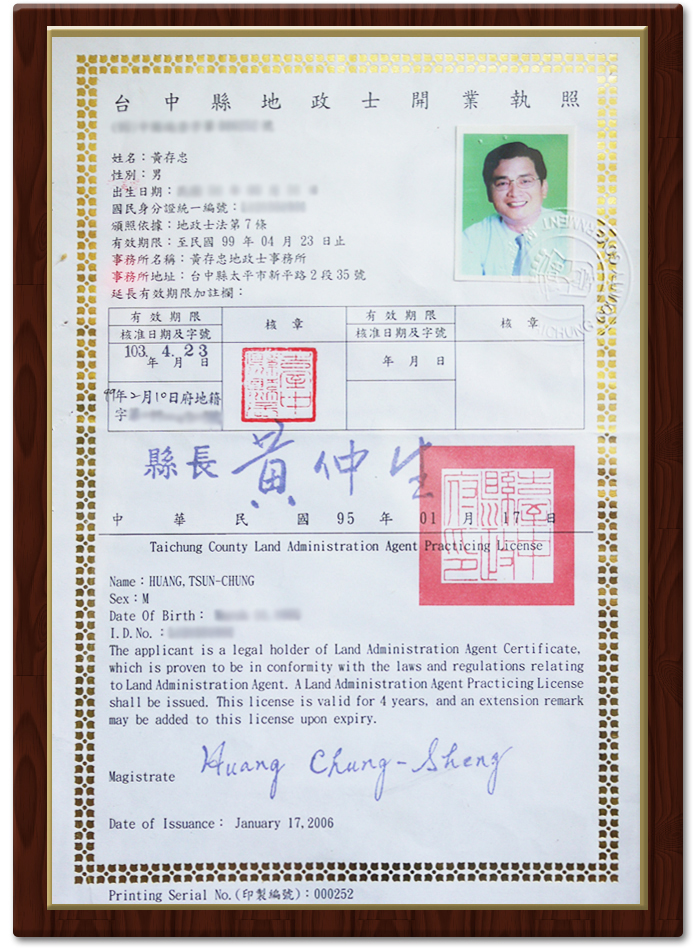 台中縣地政士開業執照
姓名：黃存忠
性別：男
出生日期：
國民身分證統一編號：
頒照依據：地政士法第7條
有效期限：至民國 99 年 04 月 23 日止
事務所名稱：黃存忠地政士事務所
事務所地址：台中縣太平市新平路２段35號
延長有效期限加註欄：
有效期限 核章 有效期限 核章
核准日期及字號 核准日期及字號
103 年 4 月 23 日 年 月 日
99年2月10日府地籍
字
縣長 黃仲生
中華民國 95 年 01 月 17 日
Taichung County Land Administration Agent Practicing License
Name：HUANG,TSUN-CHUNG
Sex：M
Date Of Birth：
I.D.No.：
The applicant is a legal holder of Land Administration Agent Certificate,
which is proven to be in conformity with the laws and regulations relating
to Land Administration Agent. A Land Administration Agent Practicing License
shall be issued. This license is valid for 4 years, and an extension remark
may be added to this license upon expiry.
Magistrate Huang Chung-Sheng
Date of Issuance： January 17,2006
Printing Serial No.(印製編號)：000252